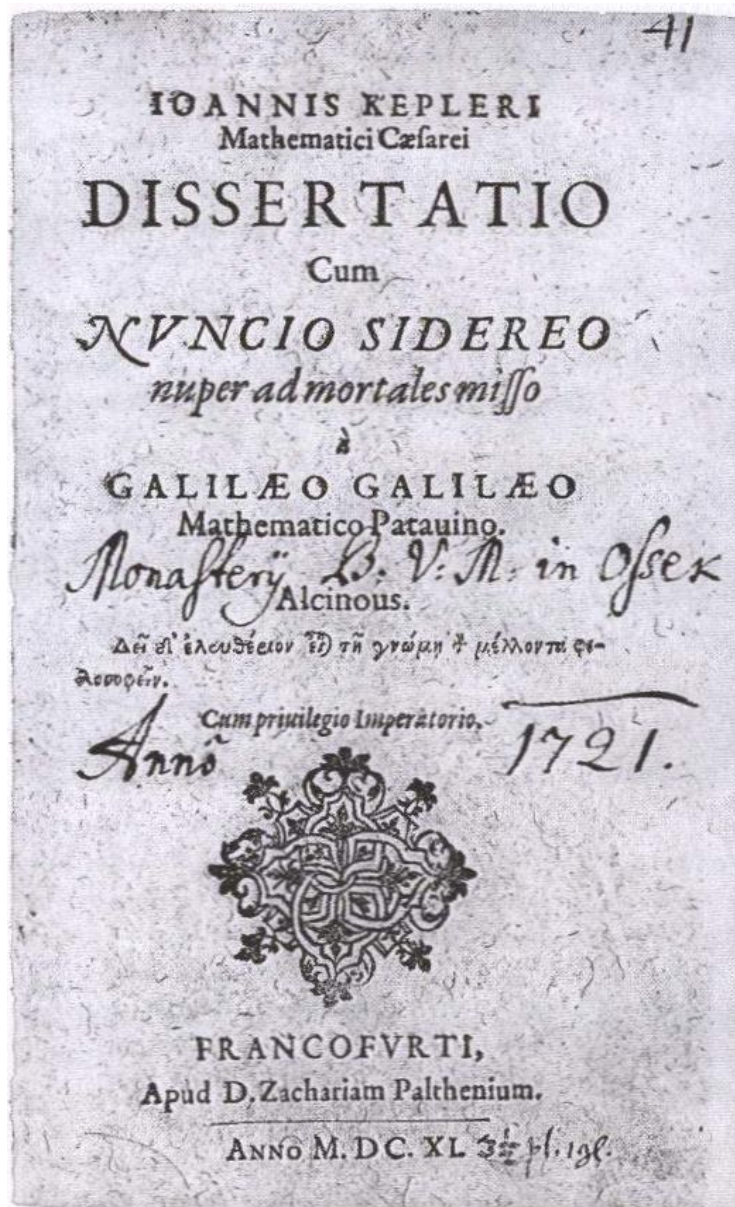 41
IOANNIS KEPLERI
Mathematici Cæſarei
DISSERTATIO
Cum
NVNCIO SIDEREO
nuper ad mortales miſſo
à
GALILÆO GALILÆO
Mathematico Patauino.
Monaſterÿ B. V. M. in Oſſek
Alcinous.
Δεῖ ἐλευθέριον τῇ γνώμῃ μέλλοντα φι-
λοσοφεῖν.
Cum priuilegio Imperatorio.
Anno 1721.
FRANCOFVRTI,
Apud D. Zachariam Palthenium.
ANNO M. DC. XI.